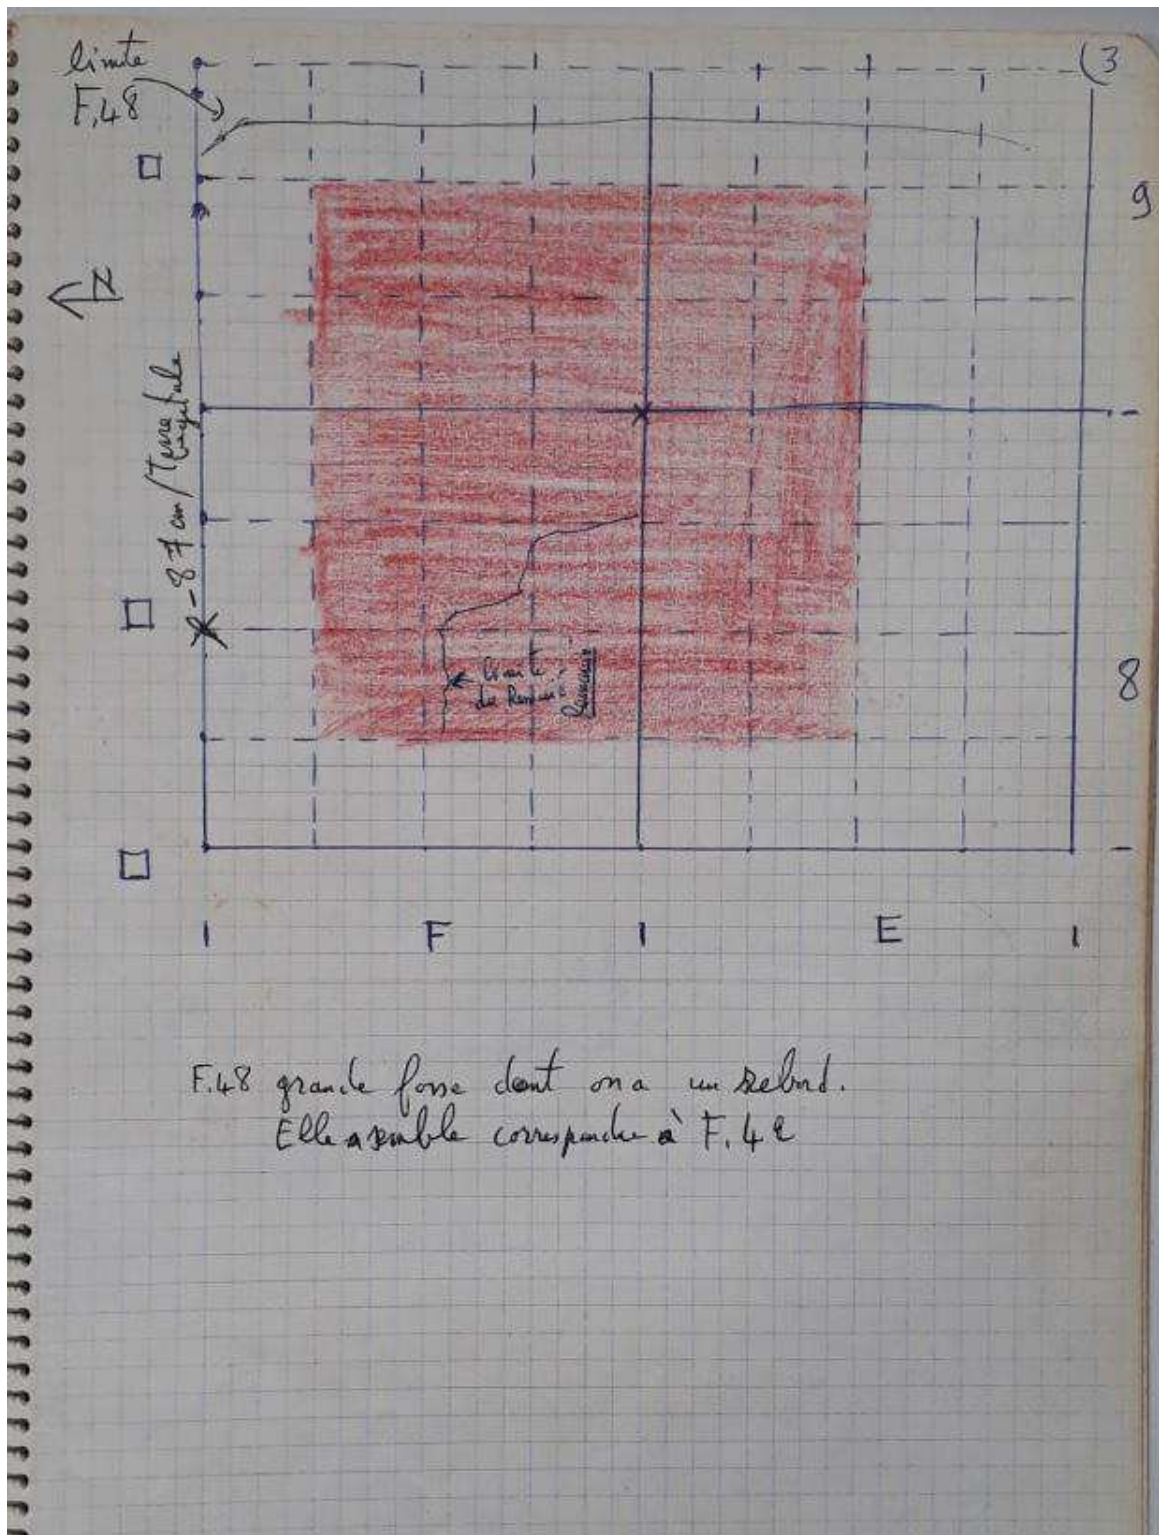 limite
F.48
(3
9
N
-87 cm / Terre
végétale
limite
du
8
F
E
F.48 grande fosse dont on a un rebord.
Elle semble correspondre à F.42